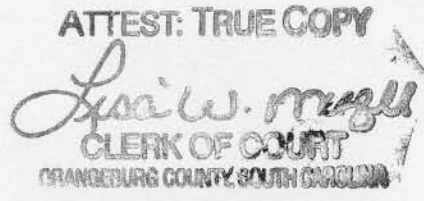 ATTEST: TRUE COPY
Lisa W. Mizell
CLERK OF COURT
ORANGEBURG COUNTY, SOUTH CAROLINA